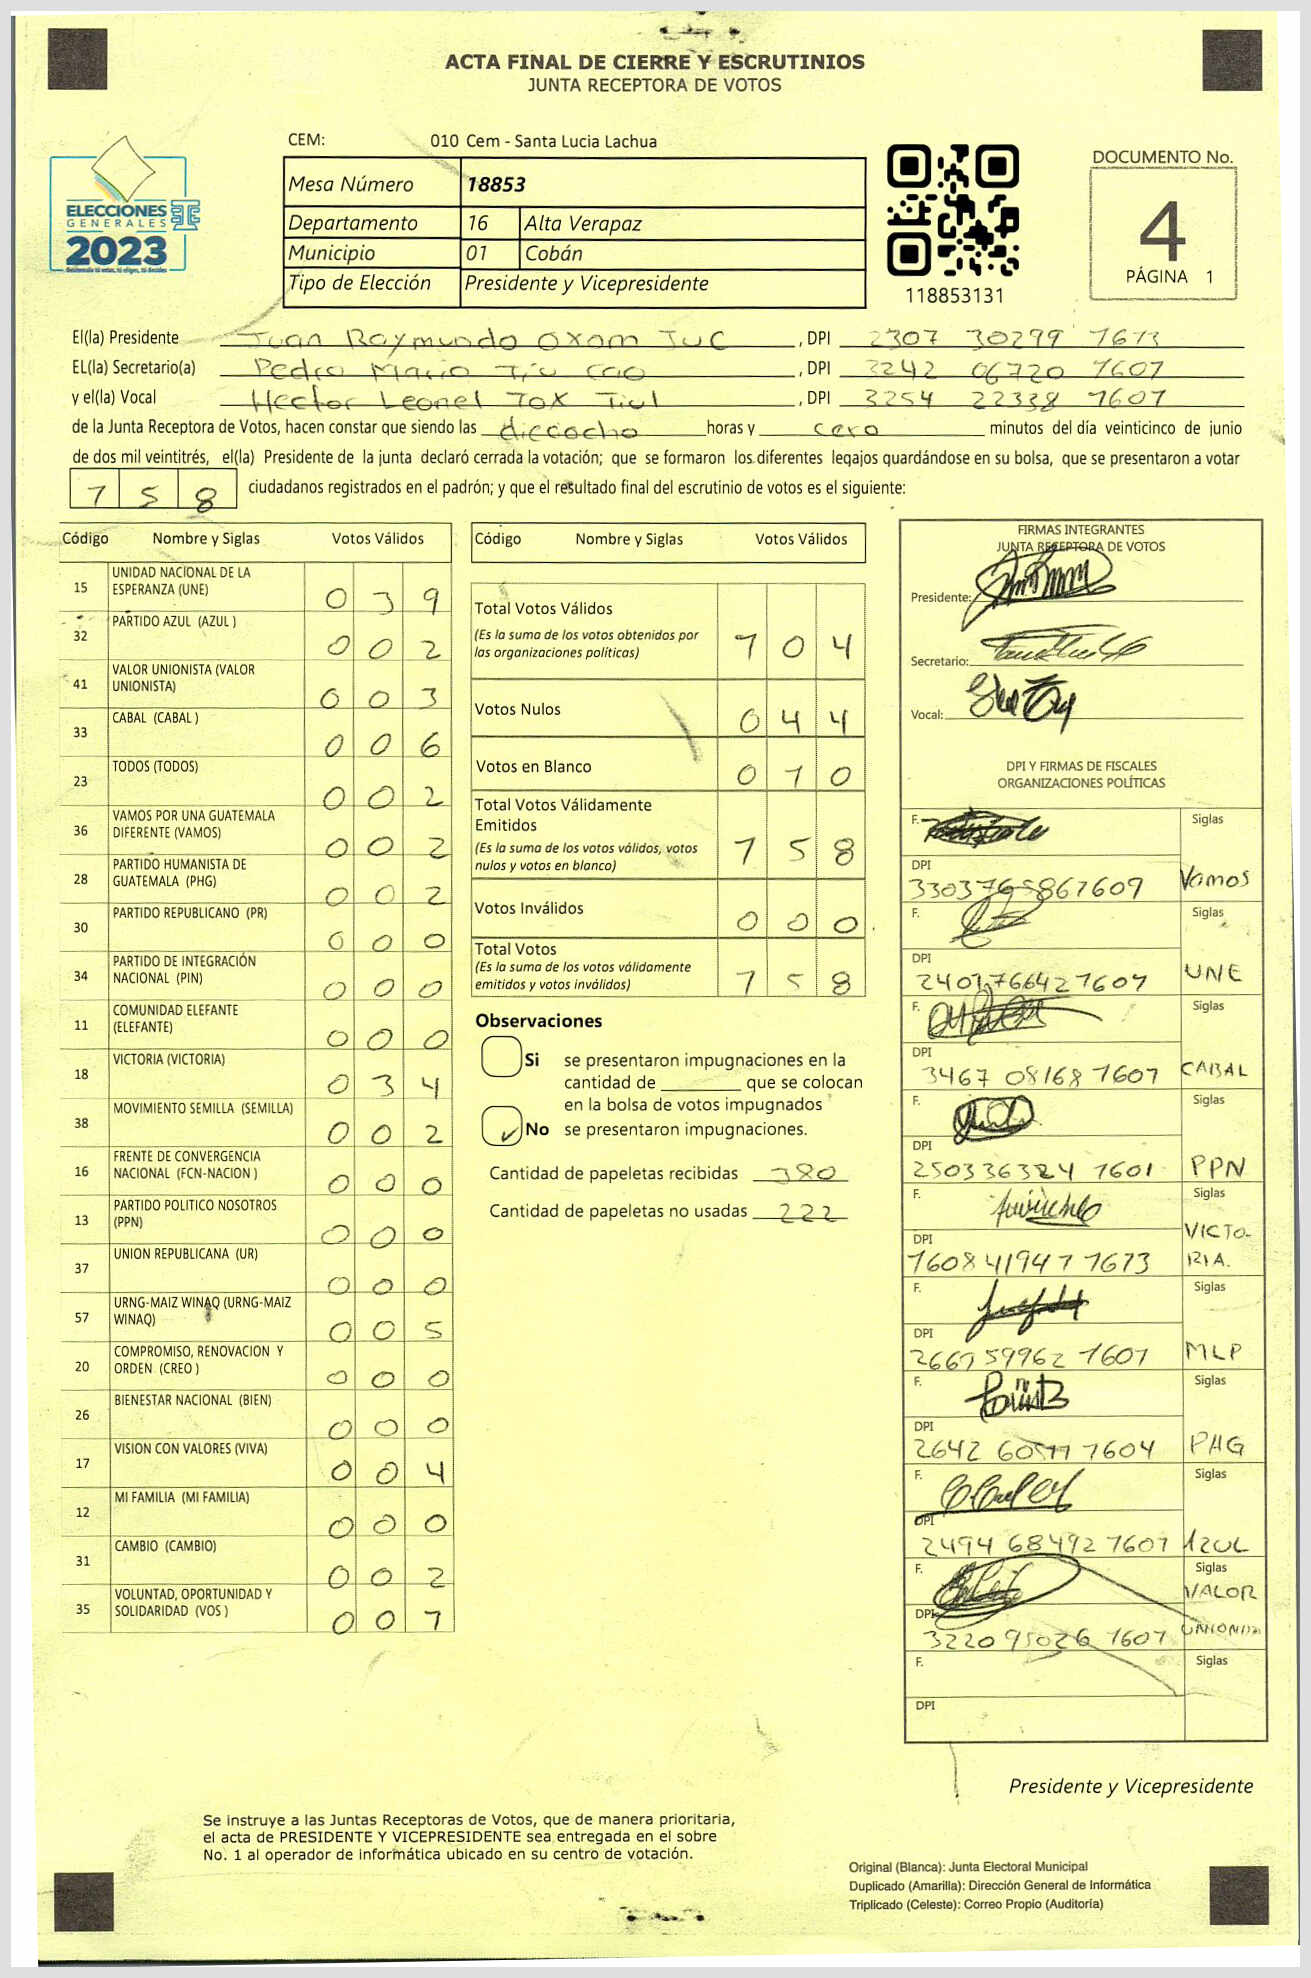 ACTA FINAL DE CIERRE Y ESCRUTINIOS
JUNTA RECEPTORA DE VOTOS
CEM: 010 Cem - Santa Lucia Lachua
ELECCIONES
GENERALES
2023
Mesa Número 18853
Departamento 16 Alta Verapaz
Municipio 01 Cobán
Tipo de Elección Presidente y Vicepresidente
118853131
DOCUMENTO No.
4
PÁGINA 1
El(la) Presidente Juan Raymundo Oxom Juc , DPI 2307 30299 1613
EL(la) Secretario(a) Pedro Mario Tiu Cao , DPI 3242 06720 1607
y el(la) Vocal Hector Leonel Tox Tiul , DPI 3254 22338 1607
de la Junta Receptora de Votos, hacen constar que siendo las dieciocho horas y cero minutos del día veinticinco de junio
de dos mil veintitrés, el(la) Presidente de la junta declaró cerrada la votación; que se formaron los diferentes legajos guardándose en su bolsa, que se presentaron a votar
1 5 8 ciudadanos registrados en el padrón; y que el resultado final del escrutinio de votos es el siguiente:
Código Nombre y Siglas Votos Válidos
15 UNIDAD NACIONAL DE LA ESPERANZA (UNE) 0 3 9
32 PARTIDO AZUL (AZUL ) 0 0 2
41 VALOR UNIONISTA (VALOR UNIONISTA) 0 0 3
33 CABAL (CABAL ) 0 0 6
23 TODOS (TODOS) 0 0 2
36 VAMOS POR UNA GUATEMALA DIFERENTE (VAMOS) 0 0 2
28 PARTIDO HUMANISTA DE GUATEMALA (PHG) 0 0 2
30 PARTIDO REPUBLICANO (PR) 0 0 0
34 PARTIDO DE INTEGRACIÓN NACIONAL (PIN) 0 0 0
11 COMUNIDAD ELEFANTE (ELEFANTE) 0 0 0
18 VICTORIA (VICTORIA) 0 3 4
38 MOVIMIENTO SEMILLA (SEMILLA) 0 0 2
16 FRENTE DE CONVERGENCIA NACIONAL (FCN-NACION ) 0 0 0
13 PARTIDO POLITICO NOSOTROS (PPN) 0 0 0
37 UNION REPUBLICANA (UR) 0 0 0
57 URNG-MAIZ WINAQ (URNG-MAIZ WINAQ) 0 0 5
20 COMPROMISO, RENOVACION Y ORDEN (CREO ) 0 0 0
26 BIENESTAR NACIONAL (BIEN) 0 0 0
17 VISION CON VALORES (VIVA) 0 0 4
12 MI FAMILIA (MI FAMILIA) 0 0 0
31 CAMBIO (CAMBIO) 0 0 2
35 VOLUNTAD, OPORTUNIDAD Y SOLIDARIDAD (VOS ) 0 0 1
Código Nombre y Siglas Votos Válidos
Total Votos Válidos
(Es la suma de los votos obtenidos por
las organizaciones políticas) 1 0 4
Votos Nulos 0 4 4
Votos en Blanco 0 1 0
Total Votos Válidamente
Emitidos
(Es la suma de los votos válidos, votos
nulos y votos en blanco) 1 5 8
Votos Inválidos 0 0 0
Total Votos
(Es la suma de los votos válidamente
emitidos y votos inválidos) 1 5 8
Observaciones
Si se presentaron impugnaciones en la
cantidad de ________ que se colocan
en la bolsa de votos impugnados
No se presentaron impugnaciones.
Cantidad de papeletas recibidas 380
Cantidad de papeletas no usadas 222
FIRMAS INTEGRANTES
JUNTA RECEPTORA DE VOTOS
Presidente:
Secretario:
Vocal:
DPI Y FIRMAS DE FISCALES
ORGANIZACIONES POLÍTICAS
F. Siglas
DPI Vamos
F. Siglas
DPI 2401766421607 UNE
F. Siglas
DPI 3467 08168 1607 CABAL
F. Siglas
DPI 250336324 1601 PPN
F. Siglas
DPI 1608 41947 1613 VICTORIA.
F. Siglas
DPI 2661 59962 1601 MLP
F. Siglas
DPI PHG
F. Siglas
DPI 2494 68492 1601 AZUL
F. Siglas
DPI 3220 95026 1607 VALOR UNIONISTA
F. Siglas
DPI
Presidente y Vicepresidente
Se instruye a las Juntas Receptoras de Votos, que de manera prioritaria,
el acta de PRESIDENTE Y VICEPRESIDENTE sea entregada en el sobre
No. 1 al operador de informática ubicado en su centro de votación.
Original (Blanca): Junta Electoral Municipal
Duplicado (Amarilla): Dirección General de Informática
Triplicado (Celeste): Correo Propio (Auditoría)